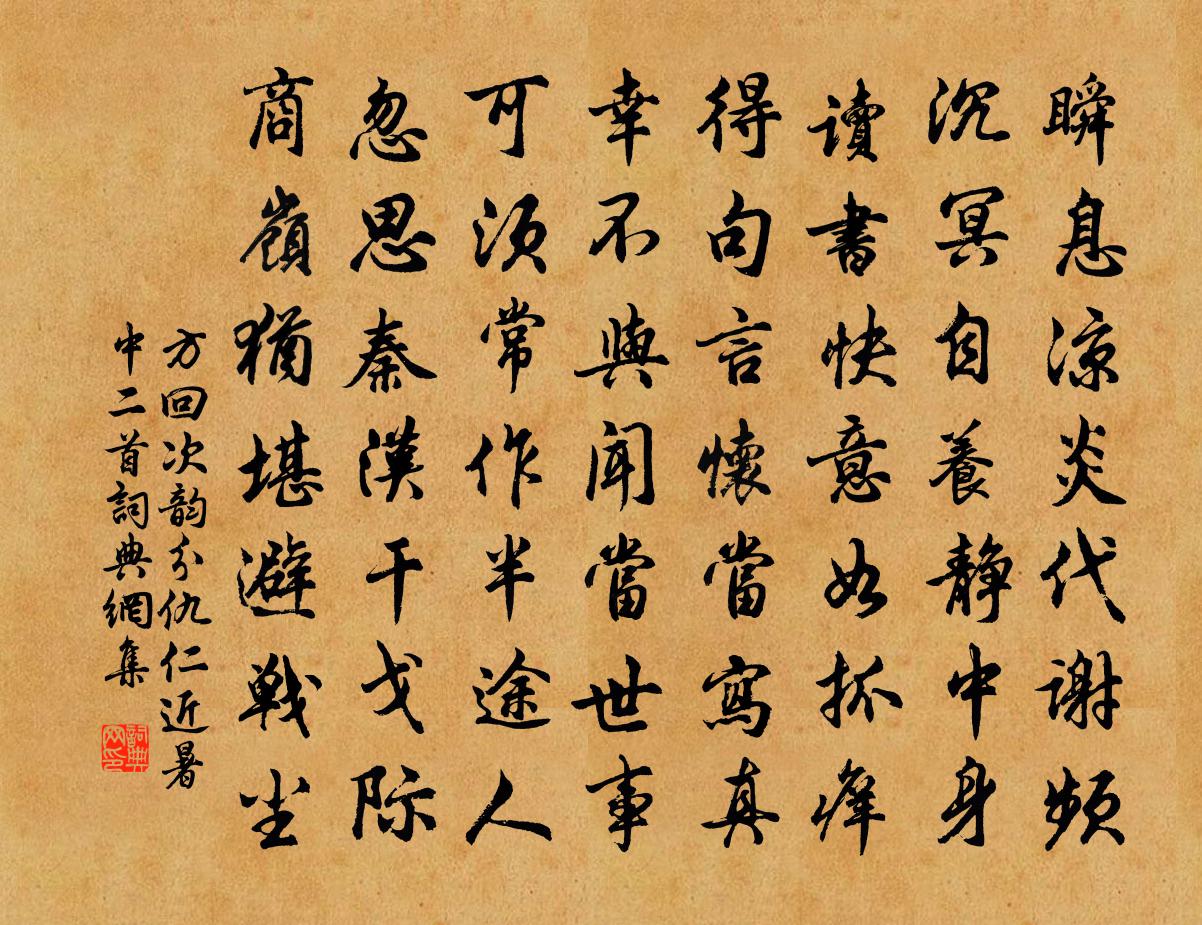 瞬息涼炎代謝頻
沉冥自養靜中身
讀書快意如抓癢
得句言懷當寫真
幸不與聞當世事
可須常作半途人
忽思秦漢干戈际
商嶺猶堪避戰尘
方回次韵分仇仁近暑
中二首詞典網集
詞典网印